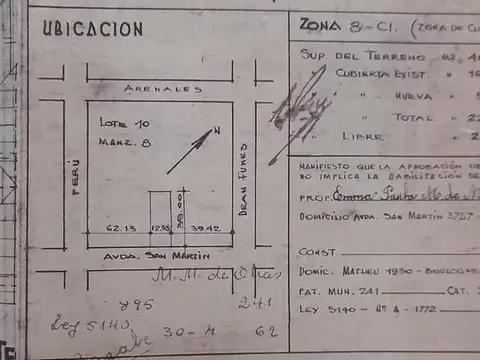 UBICACION
ARENALES
LOTE 10
MANZ. 8
N
PERÚ
DEAN FUNES
30.00
62.13
12.35
39.42
AVDA. SAN MARTIN
M.M. de Obras
895 241
Ley 5140 30-4 62
ZONA 8-C1. (ZONA DE
SUP. DEL TERRENO
CUBIERTA EXIST. "
" NUEVA "
" TOTAL "
" LIBRE "
MANIFIESTO QUE LA APROBACIÓN DE
NO IMPLICA LA HABILITACION DE
PROP. Emma
DOMICILIO AVDA. SAN MARTIN 3757 -
CONST.
DOMIC. MATHEU 1930 - BOULOGNE
PAT. MUN. 241 CAT.
LEY 5140 - Nº A - 1772